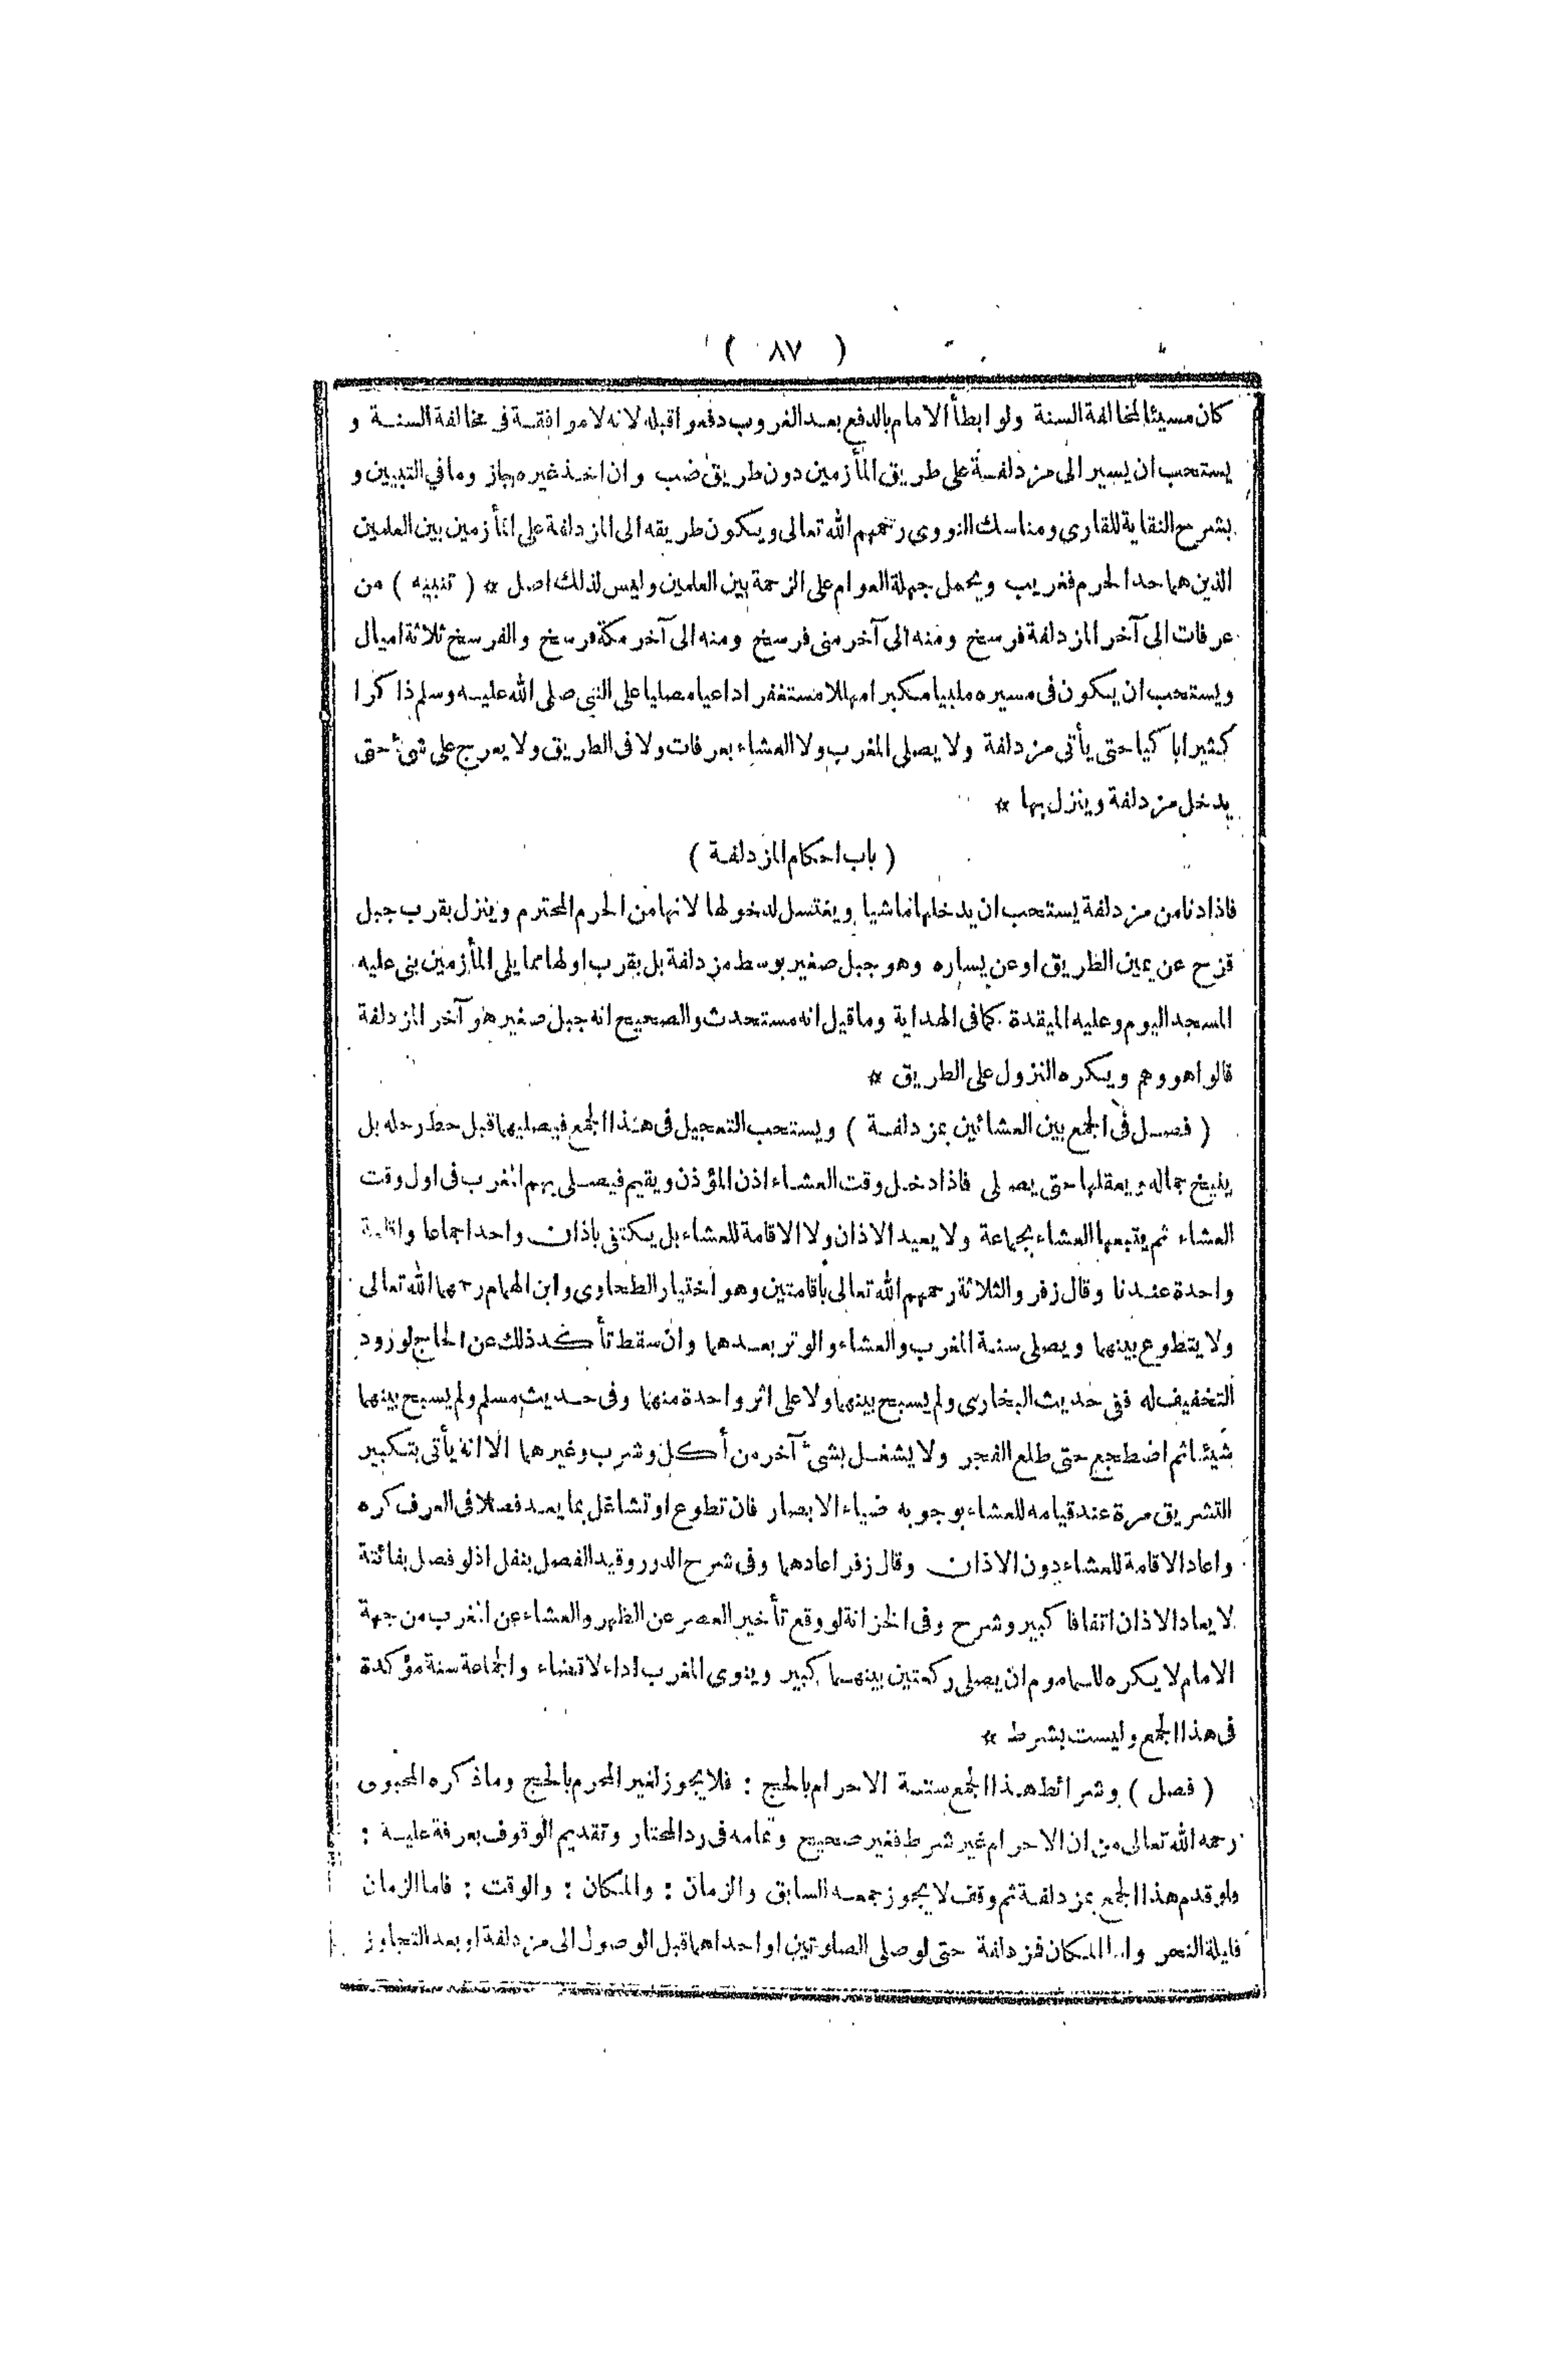 ( ٨٧ )
كان مسيئا لمخالفة السنة ولو ابطأ الامام بالدفع بعد الغروب دفعوا قبله لانه لا موافقة فى مخالفة السنة و
يستحب ان يسير الى مزدلفة على طريق المأزمين دون طريق ضب وان اخذ غيره جاز وما في التبيين و
شرح النقاية للقارى ومناسك النووى رحمهم الله تعالى ويكون طريقه الى المزدلفة على المأزمين بين العلمين
الذين هما حد الحرم فغريب ويحمل جهلة العوام على الزحمة بين العلمين وليس لذلك اصل * ( تنبيه ) من
عرفات الى آخر المزدلفة فرسخ ومنه الى آخر منى فرسخ ومنه الى آخر مكة فرسخ والفرسخ ثلاثة اميال
ويستحب ان يكون فى مسيره ملبيا مكبرا مهللا مستغفرا داعيا مصليا على النبى صلى الله عليه وسلم ذاكرا
كثيرا باكيا حتى يأتى مزدلفة ولا يصلى المغرب ولا العشاء بعرفات ولا فى الطريق ولا يعرج على شئ حتى
يدخل مزدلفة وينزل بها *
( باب احكام المزدلفة )
فاذا دنا من مزدلفة يستحب ان يدخلها ماشيا ويغتسل لدخولها لانها من الحرم المحترم وينزل بقرب جبل
قزح عن يمين الطريق او عن يساره وهو جبل صغير بوسط مزدلفة بل بقرب اولها مما يلى المأزمين بنى عليه
المسجد اليوم وعليه الميقدة كما فى الهداية وما قيل انه مستحدث والصحيح انه جبل صغير هو آخر المزدلفة
قالوا هو وهم ويكره النزول على الطريق *
( فصل فى الجمع بين العشائين بمزدلفة ) ويستحب التعجيل فى هذا الجمع فيصليهما قبل حط رحله بل
ينيخ جماله ويعقلها حتى يصلى فاذا دخل وقت العشاء اذن المؤذن ويقيم فيصلى بهم المغرب فى اول وقت
العشاء ثم يتبعها العشاء بجماعة ولا يعيد الاذان ولا الاقامة للعشاء بل يكتفى باذان واحد اجماعا واقامة
واحدة عندنا وقال زفر والثلاثة رحمهم الله تعالى بأقامتين وهو اختيار الطحاوى وابن الهمام رحمهما الله تعالى
ولا يتطوع بينهما ويصلى سنة المغرب والعشاء والوتر بعدهما وان سقط تأكد ذلك عن الحاج لورود
التخفيف له ففى حديث البخارى ولم يسبح بينهما ولا على اثر واحدة منهما وفى حديث مسلم ولم يسبح بينهما
شيئا ثم اضطجع حتى طلع الفجر ولا يشغل بشئ آخر من أكل وشرب وغيرهما الا انه يأتى بتكبير
التشريق مرة عند قيامه للعشاء بوجوبه ضياء الابصار فان تطوع او تشاغل بما يعد فصلا فى العرف كره
واعاد الاقامة للعشاء دون الاذان وقال زفر اعادهما وفى شرح الدرر وقيد الفصل بنفل اذ لو فصل بفائتة
لا يعاد الاذان اتفاقا كبير وشرح وفى الخزانة لو وقع تأخير العصر عن الظهر والعشاء عن المغرب من جهة
الامام لا يكره للماموم ان يصلى ركعتين بينهما كبير وينوى المغرب اداء لا قضاء والجماعة سنة مؤكدة
فى هذا الجمع وليست بشرط *
( فصل ) وشرائط هذا الجمع ستة الاحرام بالحج : فلا يجوز لغير المحرم بالحج وما ذكره المحبوبى
رحمه الله تعالى من ان الاحرام غير شرط فغير صحيح وتمامه فى رد المحتار وتقديم الوقوف بعرفة عليه :
ولو قدم هذا الجمع بمزدلفة ثم وقف لا يجوز جمعه السابق والزمان : والمكان : والوقت : فاما الزمان
فليلة النحر واما المكان فمزدلفة حتى لو صلى الصلوتين او احداهما قبل الوصول الى مزدلفة او بعد التجاوز